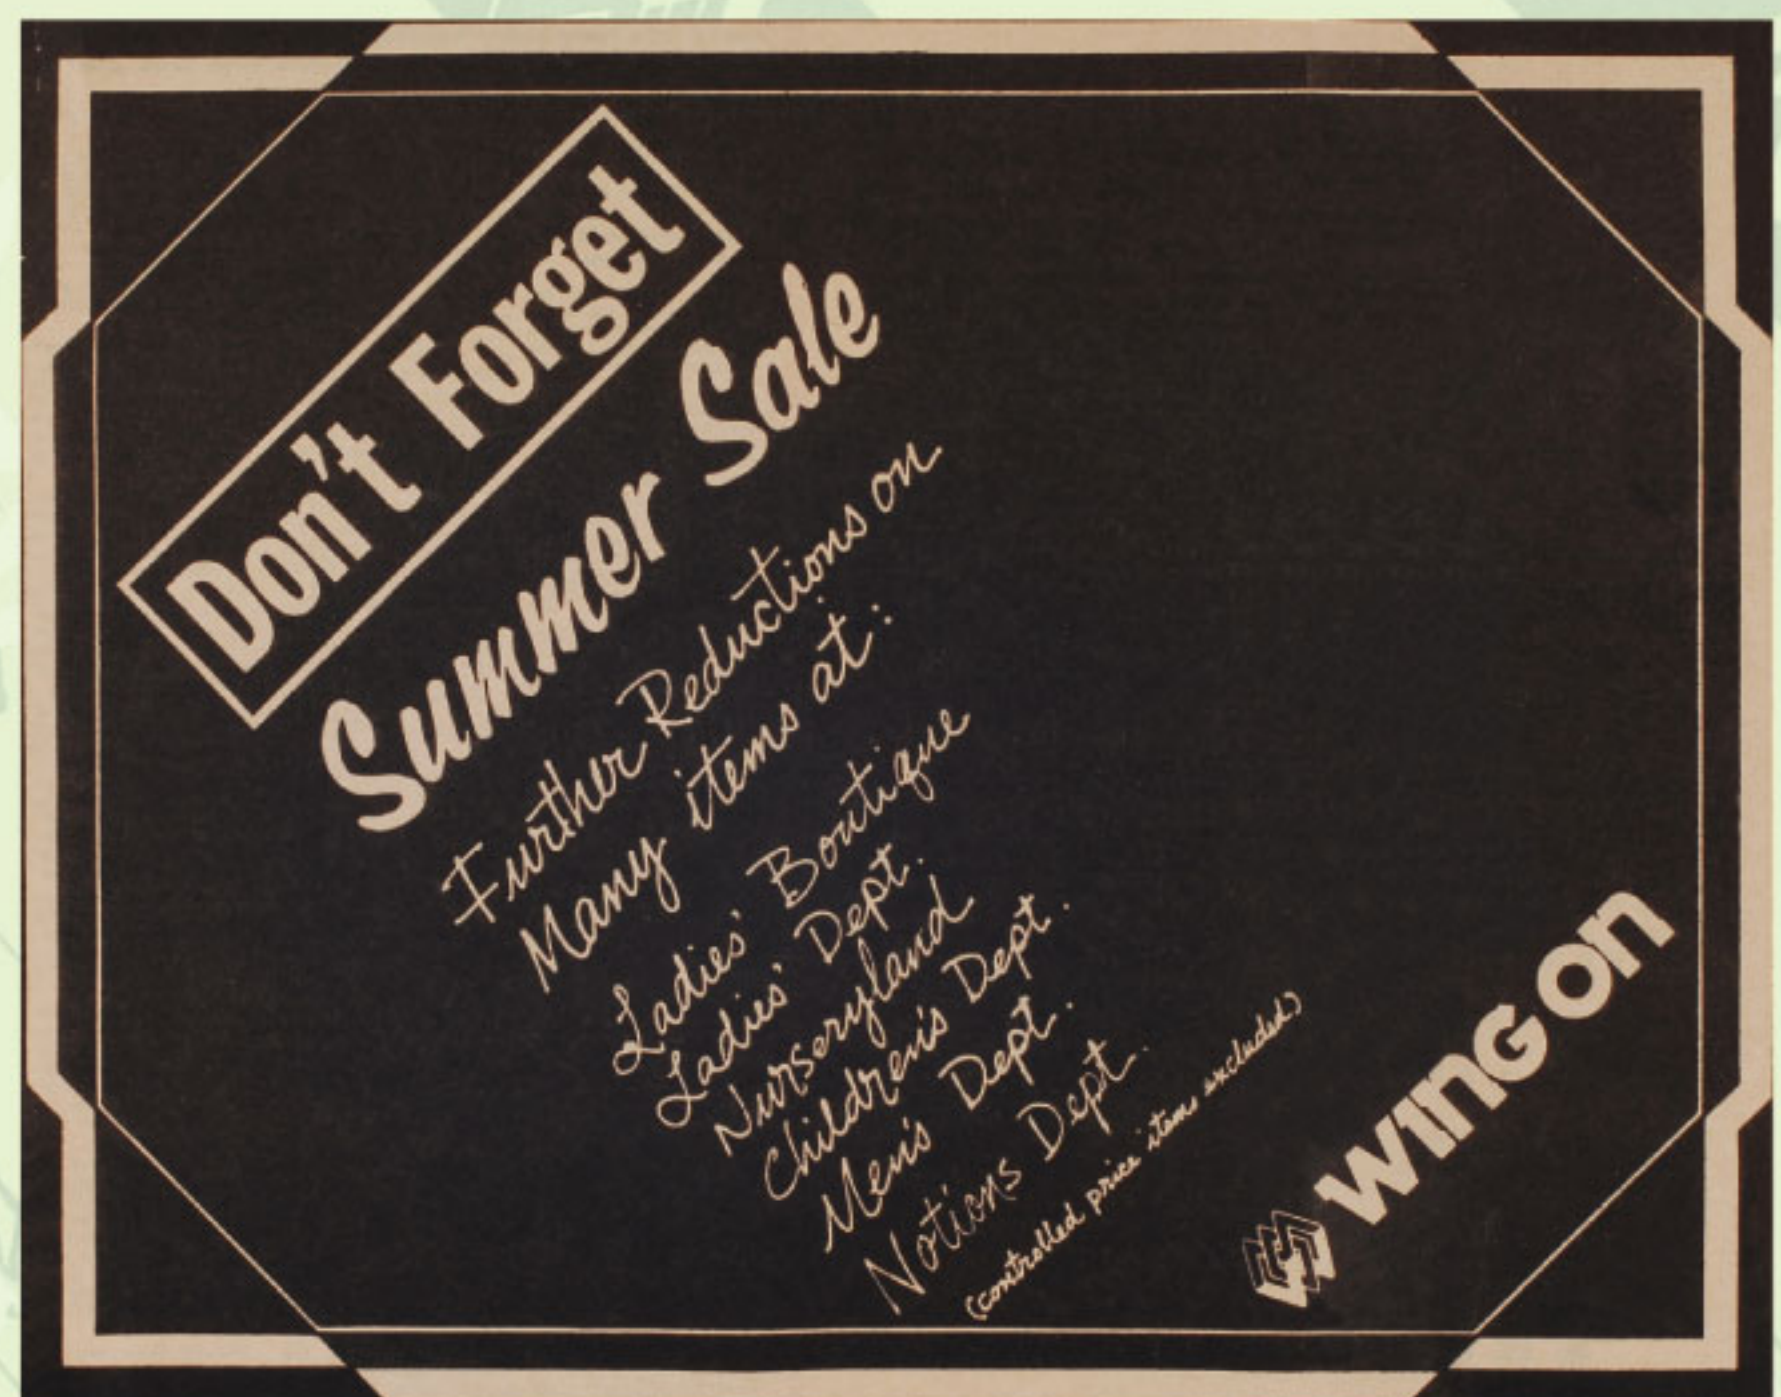 Don't Forget
Summer Sale
Further Reductions on
Many items at:
Ladies' Boutique
Ladies' Dept.
Nurseryland
Children's Dept.
Men's Dept.
Notions Dept.
(controlled price items excluded)
WING ON